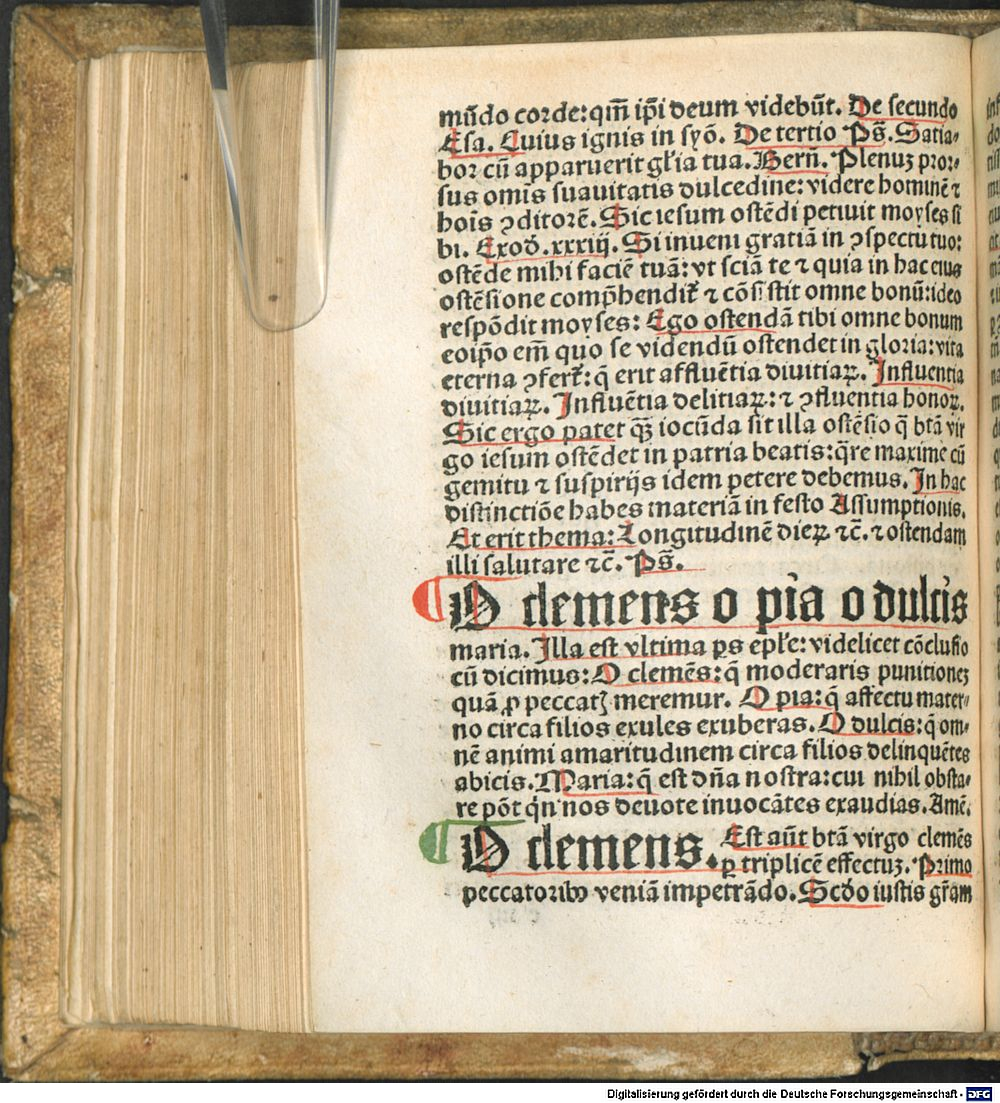 mūdo corde:qm̄ ip̄i deum videbūt. De secundo
Esa. Cuius ignis in syō. De tertio Ps̄. Satia-
bor cū apparuerit gl̄ia tua. Bern̄. Plenuꝫ pror-
sus om̄is suauitatis dulcedine: videre hominē ⁊
hoīs ꝯditorē. Sic iesum ostēdi petiuit moyses si
bi. Exod̄. xxxiij. Si inueni gratiā in ꝯspectu tuo:
ostēde mihi faciē tuā: vt sciā te ⁊ quia in hac eius
ostēsione comp̄hendit᷑ ⁊ cōsistit omne bonū: ideo
respōdit moyses: Ego ostendā tibi omne bonum
eoip̄o em̄ quo se videndū ostendet in gloria: vita
eterna ꝯfert᷑: q̄ erit affluētia diuitiaꝝ. Influentia
diuitiaꝝ. Influētia delitiaꝝ: ⁊ ꝯfluentia honoꝝ.
Sic ergo patet qꝫ̄ iocūda sit illa ostēsio q̄ btā vir
go iesum ostēdet in patria beatis: q̄re maxime cū
gemitu ⁊ suspirijs idem petere debemus. In hac
distinctiōe habes materiā in festo Assumptionis.
Et erit thema: Longitudinē dieꝝ ⁊c̄. ⁊ ostendam
illi salutare ⁊c̄. Ps̄.
¶ O clemens o pia o dulcis
maria. Illa est vltima ps epl̄e: videlicet cōclusio
cū dicimus: O clemēs: q̄ moderaris punitioneꝫ
quā ꝓ peccatꝭ meremur. O pia: q̄ affectu mater-
no circa filios exules exuberas. O dulcis: q̄ om-
nē animi amaritudinem circa filios delinquētes
abicis. Maria: q̄ est dn̄a nostra: cui nihil obsta-
re pōt q̇n nos deuote inuocātes exaudias. Amē.
¶ O clemens. Est aūt btā virgo clemēs
ꝑ triplicē effectuꝫ. Primo
peccatoribꝰ veniā impetrādo. Scd̄o iustis gr̄am
Digitalisierung gefördert durch die Deutsche Forschungsgemeinschaft - DFG